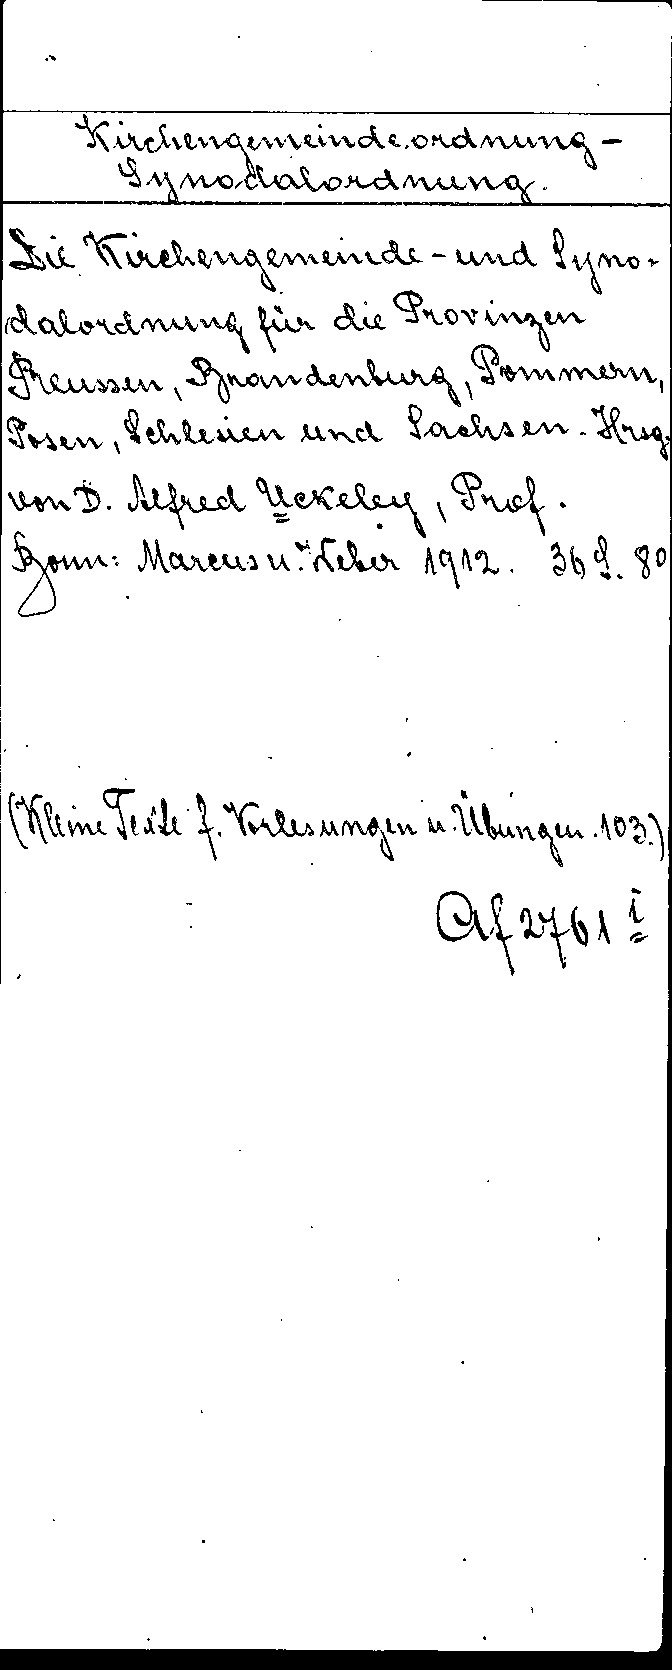 Kirchengemeindeordnung -
Synodalordnung.
Die Kirchengemeinde - und Syno-
dalordnung für die Provinzen
Preussen, Brandenburg, Pommern,
Posen, Schlesien und Sachsen. Hrsg.
von D. Alfred Uckeley, Prof.
Bonn: Marcus u. Weber 1912. 36 S. 80
(Kleine Texte f. Vorlesungen u. Übungen. 103.)
Af 2761 i